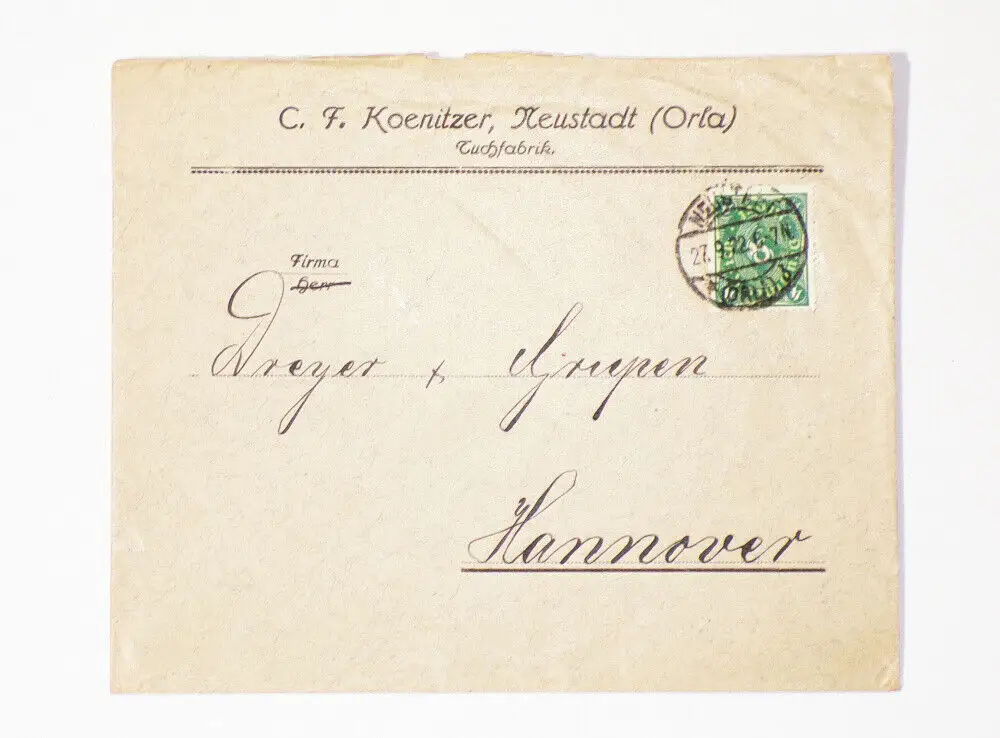 C. F. Koenitzer, Neustadt (Orla)
Tuchfabrik.
NEUSTADT
27. 9. 22. 6-7N.
* (ORLA)
Firma
Herr
Dreyer +
Hannover